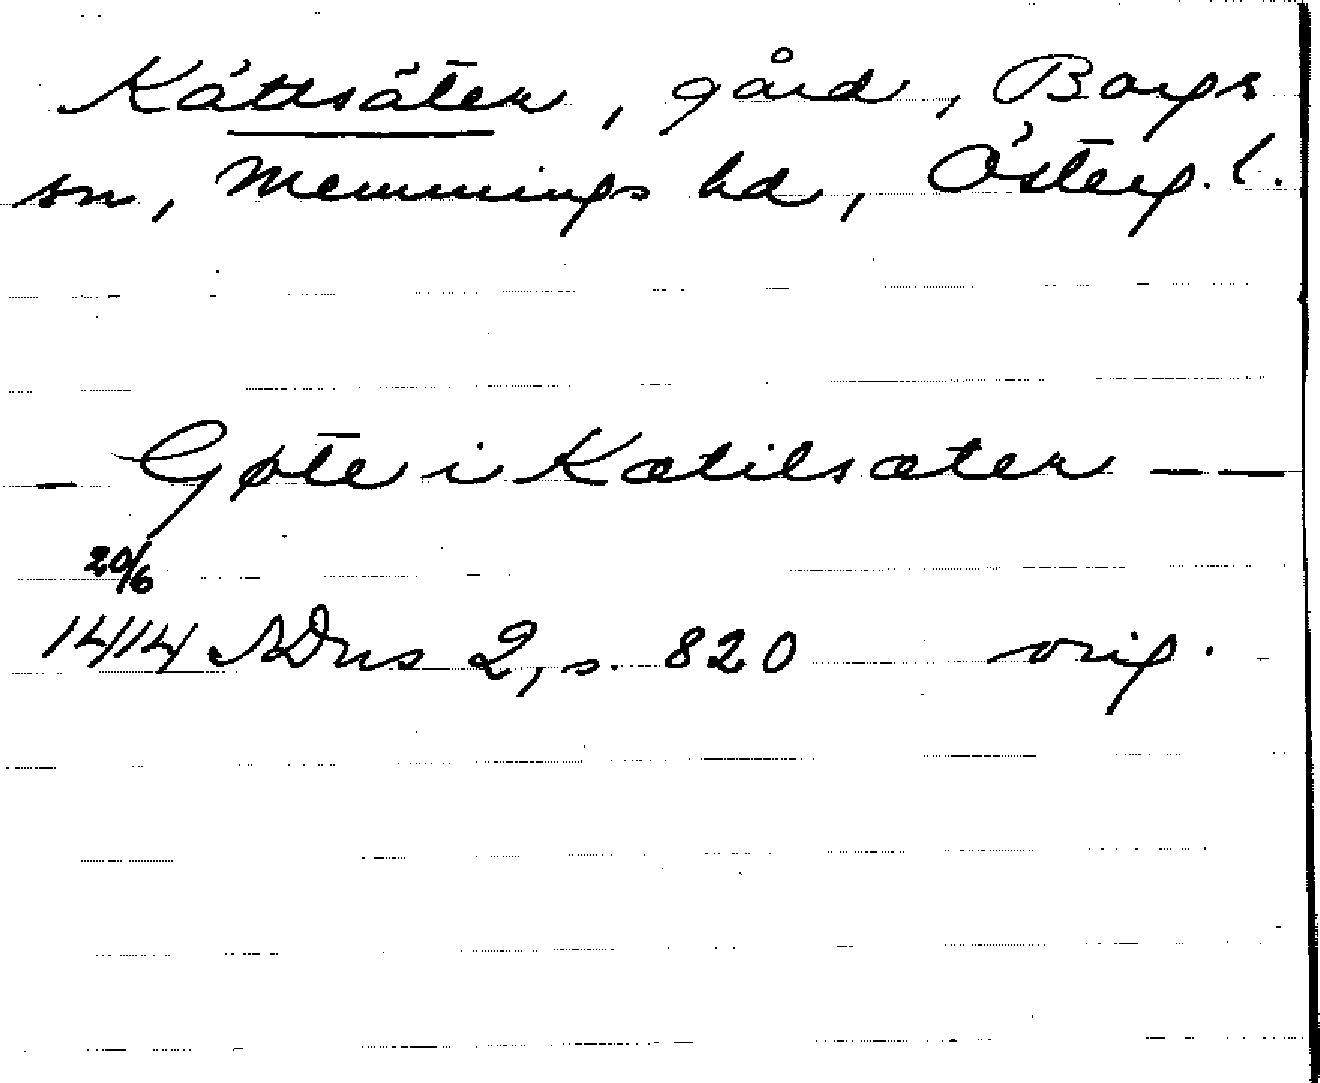 Kättsäter, gård, Borgs
sn, Memmings hd, Österg. l.
- Gøte i Kætilsæter — —
20/6
1414 SDns 2, s. 820 orig.